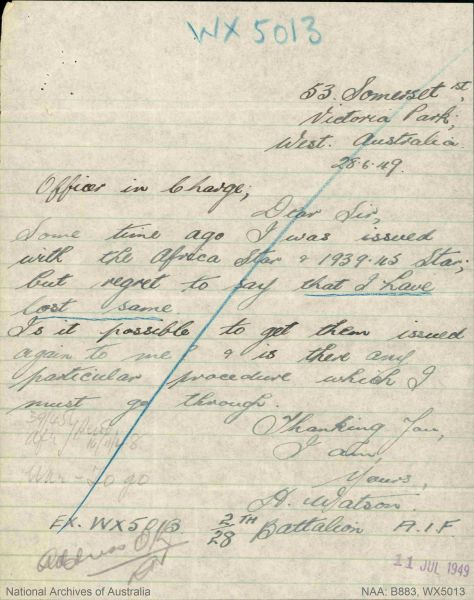 WX 5013
53. Somerset St,
Victoria Park;
West. Australia.
28.6.49.
Officer in Charge;
Dear Sir,
Some time ago I was issued
with the Africa Star & 1939-45 Star;
but regret to say that I have
lost same
Is it possible to get them issued
again to me & is there any
particular procedure which I
must go through.
Thanking You,
I am,
Yours,
H. Watson.
EX. WX5013 2/28 TH Battalion A.I.F
Address
11 JUL 1949
National Archives of Australia
NAA: B883, WX5013